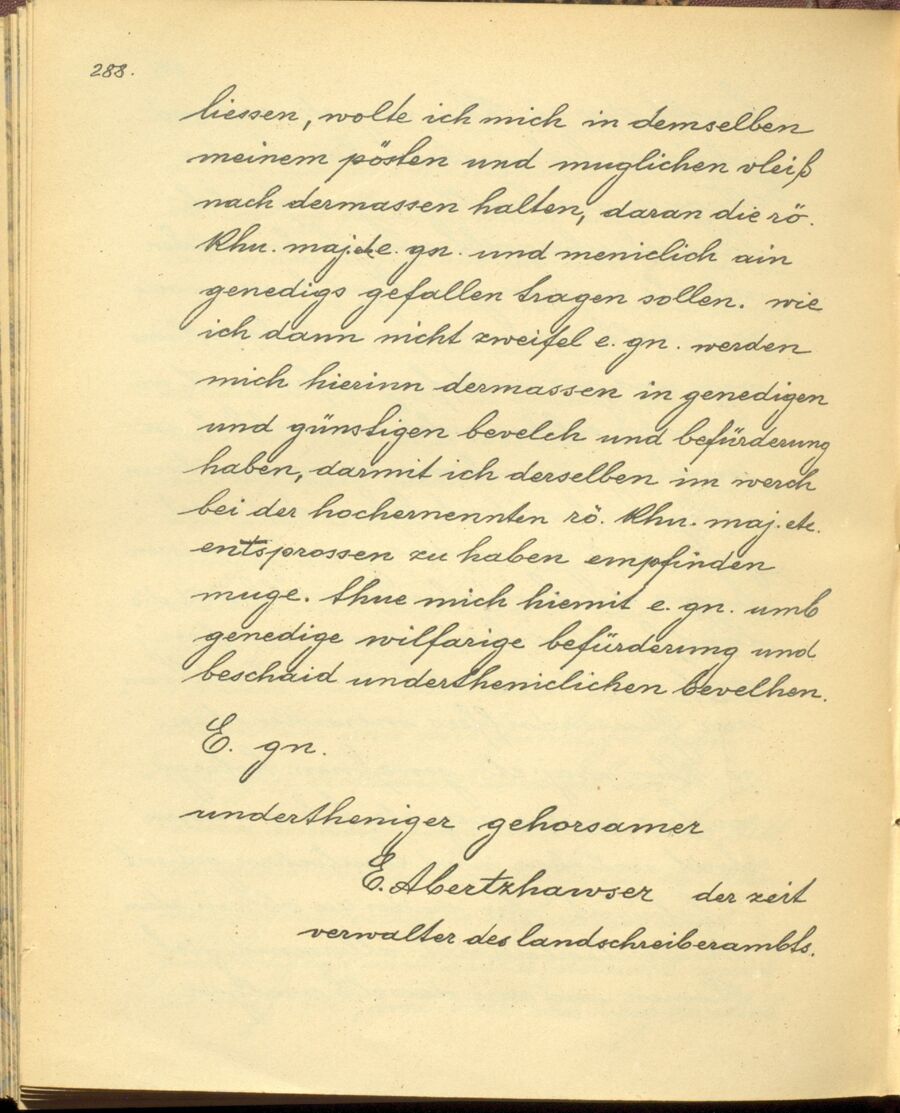 288.
liessen, wolte ich mich in demselben
meinem pösten und muglichen vleiß
nach dermassen halten, daran die rö.
Khu. maj. etc e. gn. und meniclich ain
genedigs gefallen tragen sollen. wie
ich dann nicht zweifel e. gn. werden
mich hierinn dermassen in genedigen
und günstigen bevelch und befürderung
haben, darmit ich derselben im werch
bei der hochernennten rö. Khu. maj. etc.
entsprossen zu haben empfinden
muge. thue mich hiemit e. gn. umb
genedige wilfarige befürderung und
beschaid undertheniclichen bevelhen.
E. gn.
undertheniger gehorsamer
E. Abertzhawser der zeit
verwalter des landschreiberambts.